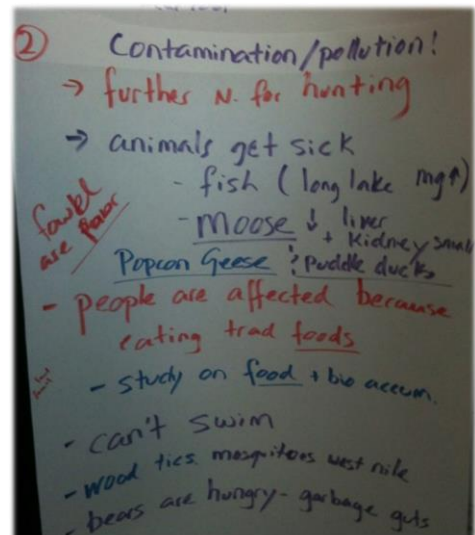 ② Contamination/pollution!
→ further N. for hunting
→ animals get sick
- fish (long lake mg↑)
- moose ↓ liver
+ Kidney small
fowl
are
Popcon Geese : puddle ducks
- people are affected because
eating trad foods
- study on food + bio accum.
- can't swim
- wood tics mosquitoes west nile
- bears are hungry - garbage guts